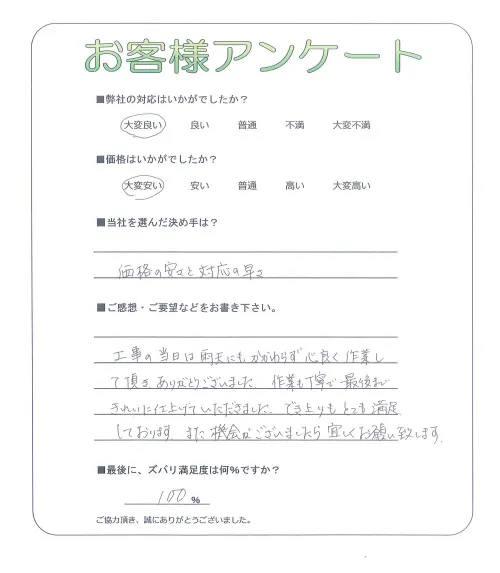 お客様アンケート
■弊社の対応はいかがでしたか？
大変良い 良い 普通 不満 大変不満
■価格はいかがでしたか？
大変安い 安い 普通 高い 大変高い
■当社を選んだ決め手は？
価格の安さと対応の早さ
■ご感想・ご要望などをお書き下さい。
工事の当日は雨天にもかかわらず心良く作業し
て頂きありがとうございました。作業も丁寧で最後まで
きれいに仕上げていただきました。でき上りもとても満足
しております。また機会がございましたら宜しくお願い致します。
■最後に、ズバリ満足度は何%ですか？
100 %
ご協力頂き、誠にありがとうございました。